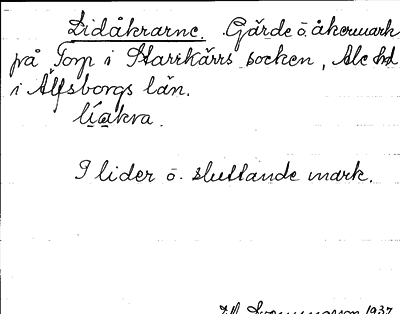 Lidåkrarne. Gärde ō. åkermark
på Torp i Starrkärrs socken, Ale hd
i Älfsborgs län.
líakra.
I lider ō. sluttande mark.
1937